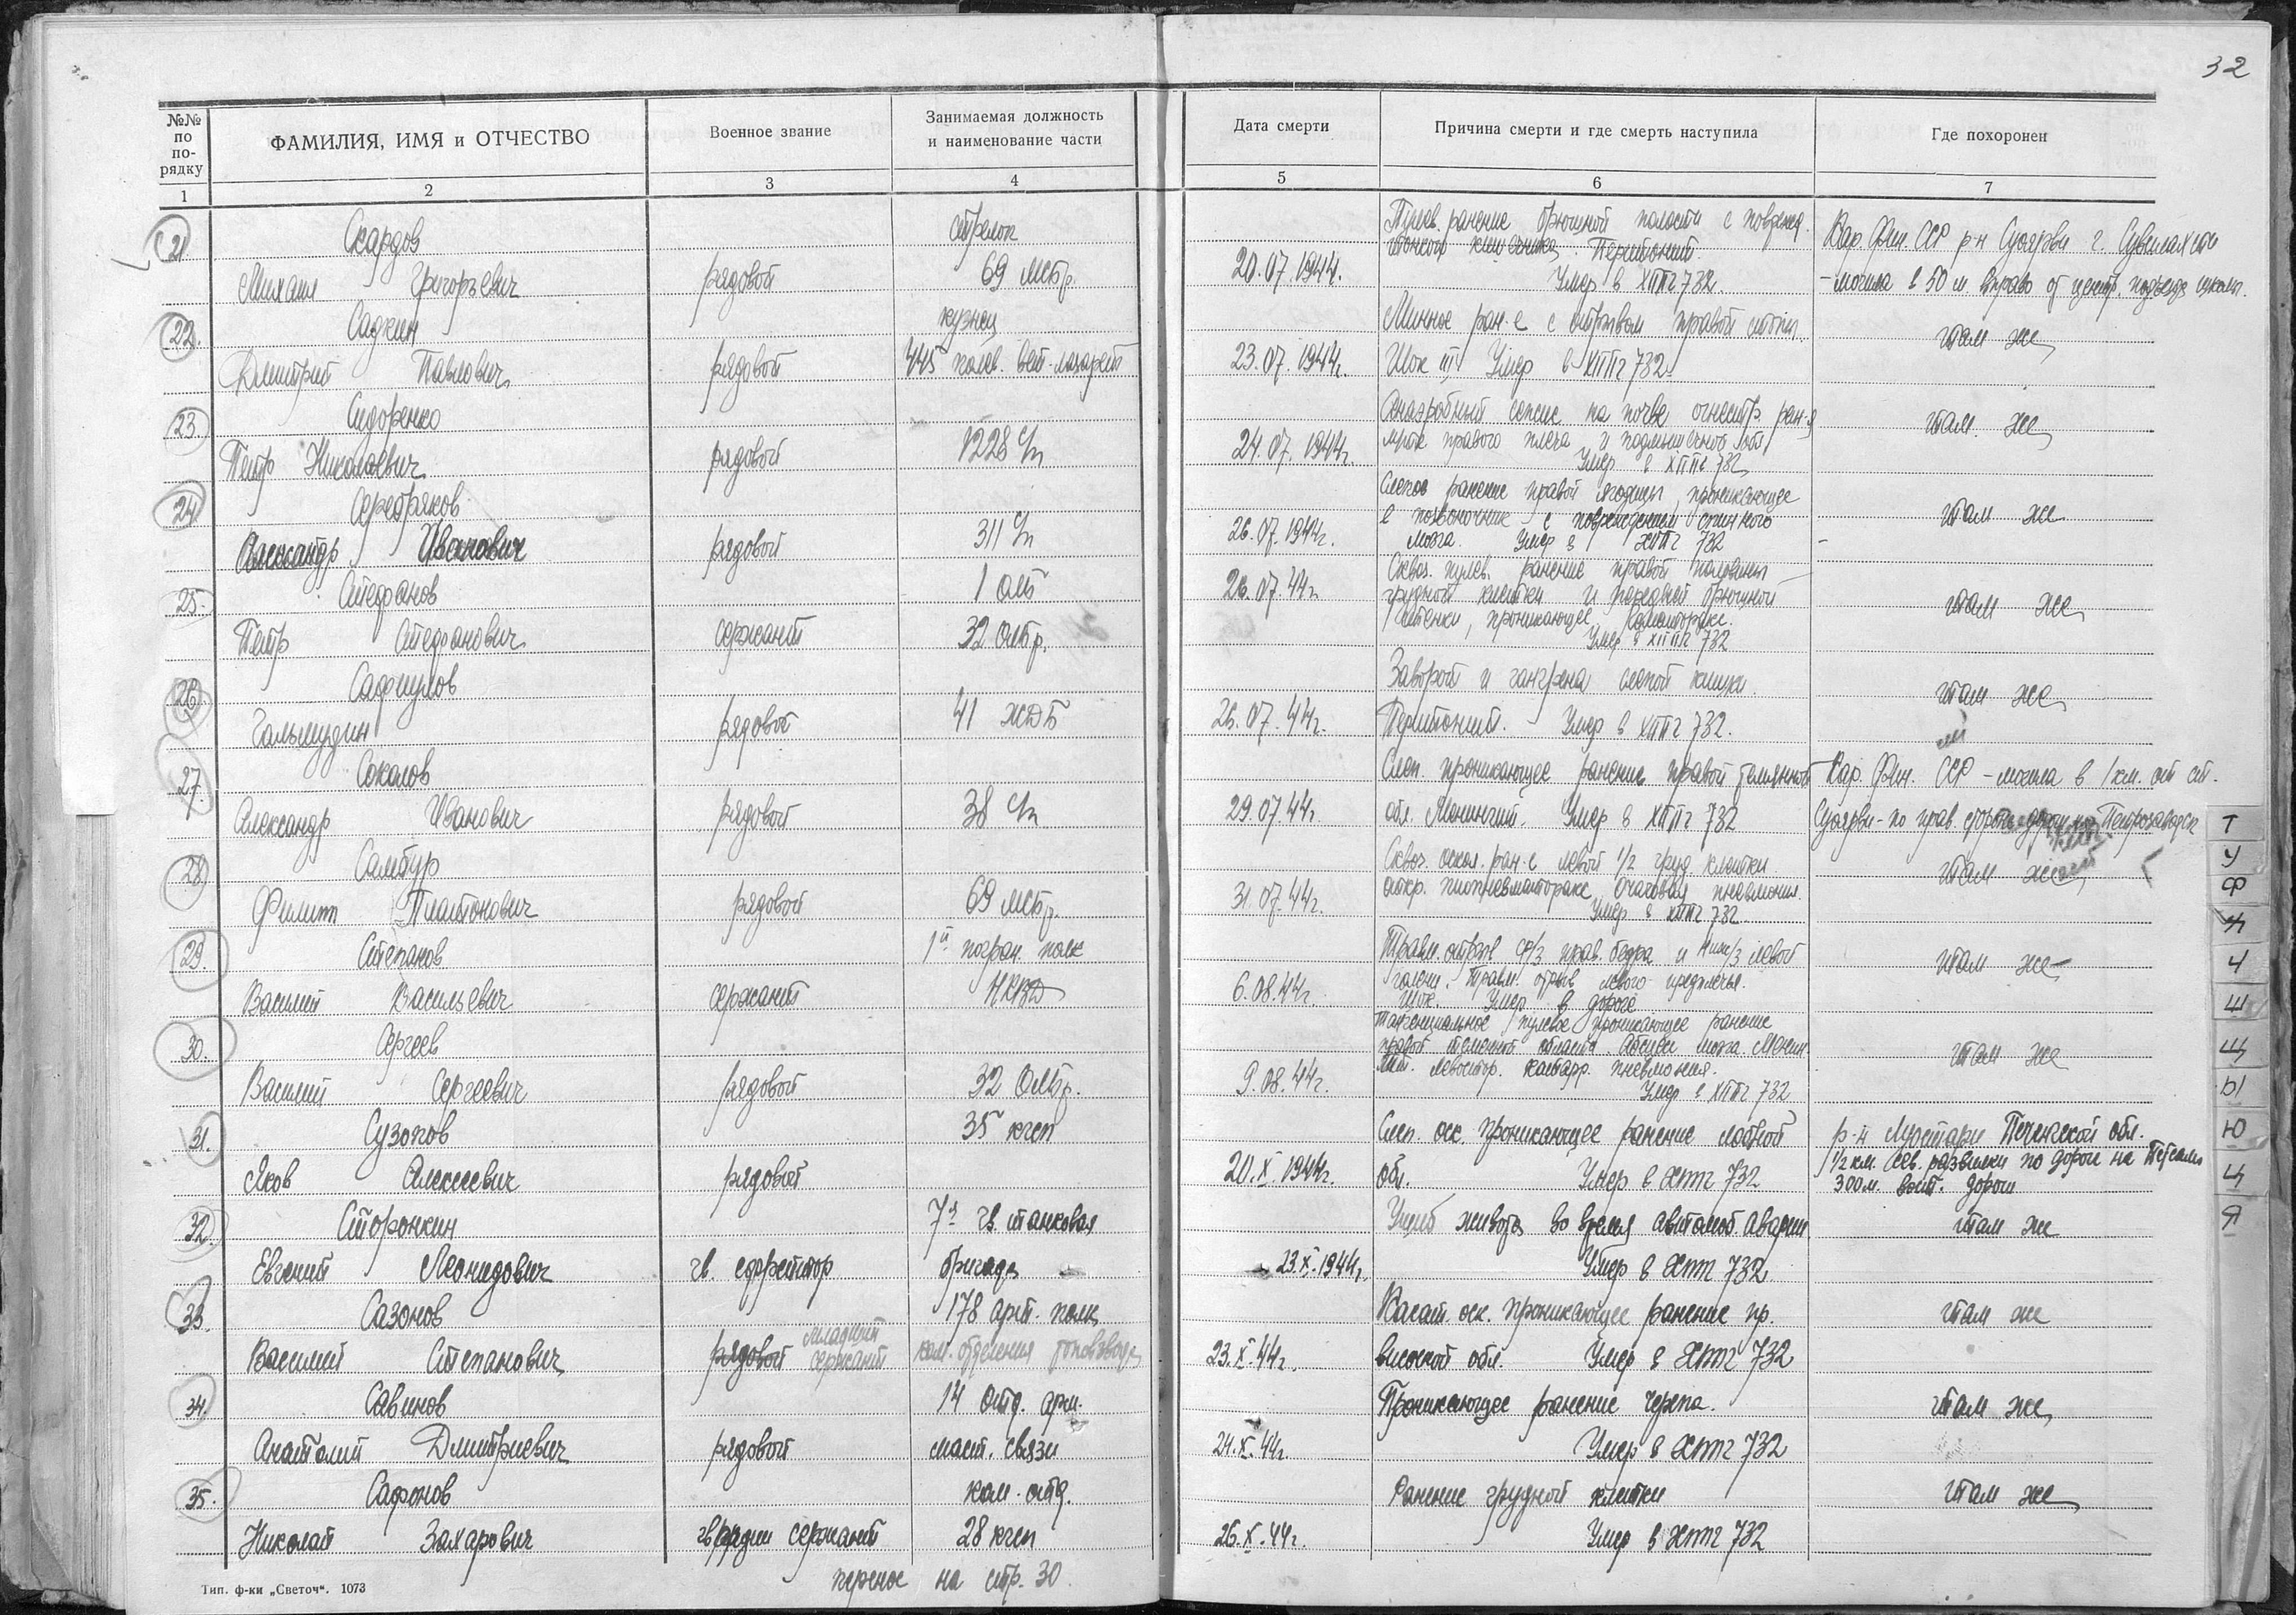 32
№№ по по- рядку
ФАМИЛИЯ, ИМЯ и ОТЧЕСТВО
Военное звание
Занимаемая должность
и наименование части
Дата смерти
Причина смерти и где смерть наступила
Где похоронен
1 2 3 4 5 6 7
21 Скардов стрелок
Михаил Григорьевич рядовой 69 мсбр. 20.07.1944.
Пулев. ранение брюшной полости с поврежд.
тонкого кишечника. Перитонит.
Умер в ХППГ 732.
Кар. Фин. ССР р-н Суоярви г. Сувилахти
- могила в 50 м. вправо от центр. подъезда школы.
22. Садкин кузнец
Дмитрий Павлович рядовой 445 полев. вет-лазарет 23.07.1944г.
Минное ран-е с отрывом правой стопы.
Шок III, Умер в ХППГ 732
там же
23. Сидоренко
Петр Николаевич рядовой 1228 с/п 24.07.1944г.
Анаэробный сепсис на почве огнестр. ран-я
мягк. правого плеча и подмышечной обл.
Умер в ХППГ 732
там же
24 Серебряков
Александр Иванович рядовой 311 с/п 26.07.1944г.
Слепое ранение правой ягодицы, проникающее
в позвоночник с повреждением спинного
мозга. Умер в ХППГ 732
там же
25. Стефанов 1 омб
Петр Стефанович сержант 32 ОЛБр. 26.07.44г.
Сквоз. пулев. ранение правой половины
грудной клетки и передней брюшной
стенки, проникающее, гемоторакс.
Умер в ХППГ 732
там же
26. Сафиулов
Гальмудин рядовой 41 ЖДБ 26.07.44г.
Заворот и гангрена слепой кишки.
Перитонит. Умер в ХППГ 732.
там же
27. Соколов
Александр Иванович рядовой 38 с/п 29.07.44г.
Слеп. проникающее ранение правой теменной
обл. Менингит. Умер в ХППГ 732
Кар. Фин. ССР - могила в 1 км. от ст.
Суоярви - по прав. стороне дороги на Петрозаводск
28 Самбур
Филипп Платонович рядовой 69 мсбр. 31.07.44г.
Сквоз. оскол. ран-е левой 1/2 груд. клетки
откр. пиопневмоторакс. Очаговая пневмония.
Умер в ХППГ 732
там же
29. Степанов 1й погран. полк
Василий Васильевич сержант НКВД 6.08.44г.
Травм. отрыв ср/3 прав. бедра и ниж/3 левой
голени. Травм. отрыв левого предплечья.
Шок. Умер в дороге
там же
30. Сергеев
Василий Сергеевич рядовой 32 ОЛБр. 9.08.44г.
Тангенциальное пулевое проникающее ранение
правой теменной области. Абсцесс мозга. Менин-
гит. левостор. катарр. пневмония.
Умер в ХППГ 732
там же
31. Сузонов 35 кгсп
Яков Алексеевич рядовой 20.X.1944г.
Слеп. оск. проникающее ранение лобной
обл. Умер в ХППГ 732
р-н Луостари Печенгской обл.
1/2 км. сев. развилки по дороге на Петсамо
300 м. вост. дороги
32. Сторонкин 7я гв. танковая
Евгений Леонидович гв. ефрейтор бригада 23.X.1944г.
Ушиб живота во время автомоб. аварии
Умер в ХППГ 732
там же
33. Сазонов 178 арт. полк
Василий Степанович рядовой младший сержант ком. отделения топовзвода 23.X.44г.
Касат. оск. проникающее ранение пр.
височной обл. Умер в ХППГ 732
там же
34. Савинов 14 отд. арм.
Анатолий Дмитриевич рядовой связи 24.X.44г.
Проникающее ранение черепа.
Умер в ХППГ 732
там же
35. Сафонов ком. отд.
Николай Захарович гв. сержант 28 кгсп 26.X.44г.
Ранение грудной клетки
Умер в ХППГ 732
там же
Тип. ф-ки „Светоч“. 1073
перенос на стр. 30
Т
У
Ф
Ч
Ш
Щ
Ы
Ю
Я